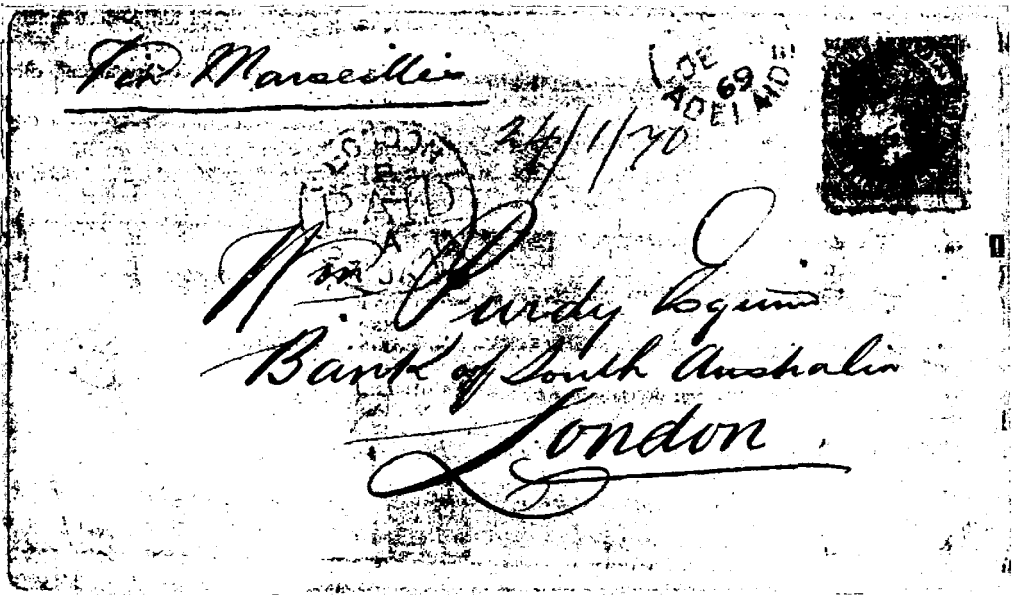 Via Marseilles
DE
69
ADELAIDE
24/1/70
LONDON
PAID
Wm Purdy Esquire
Bank of South Australia
London